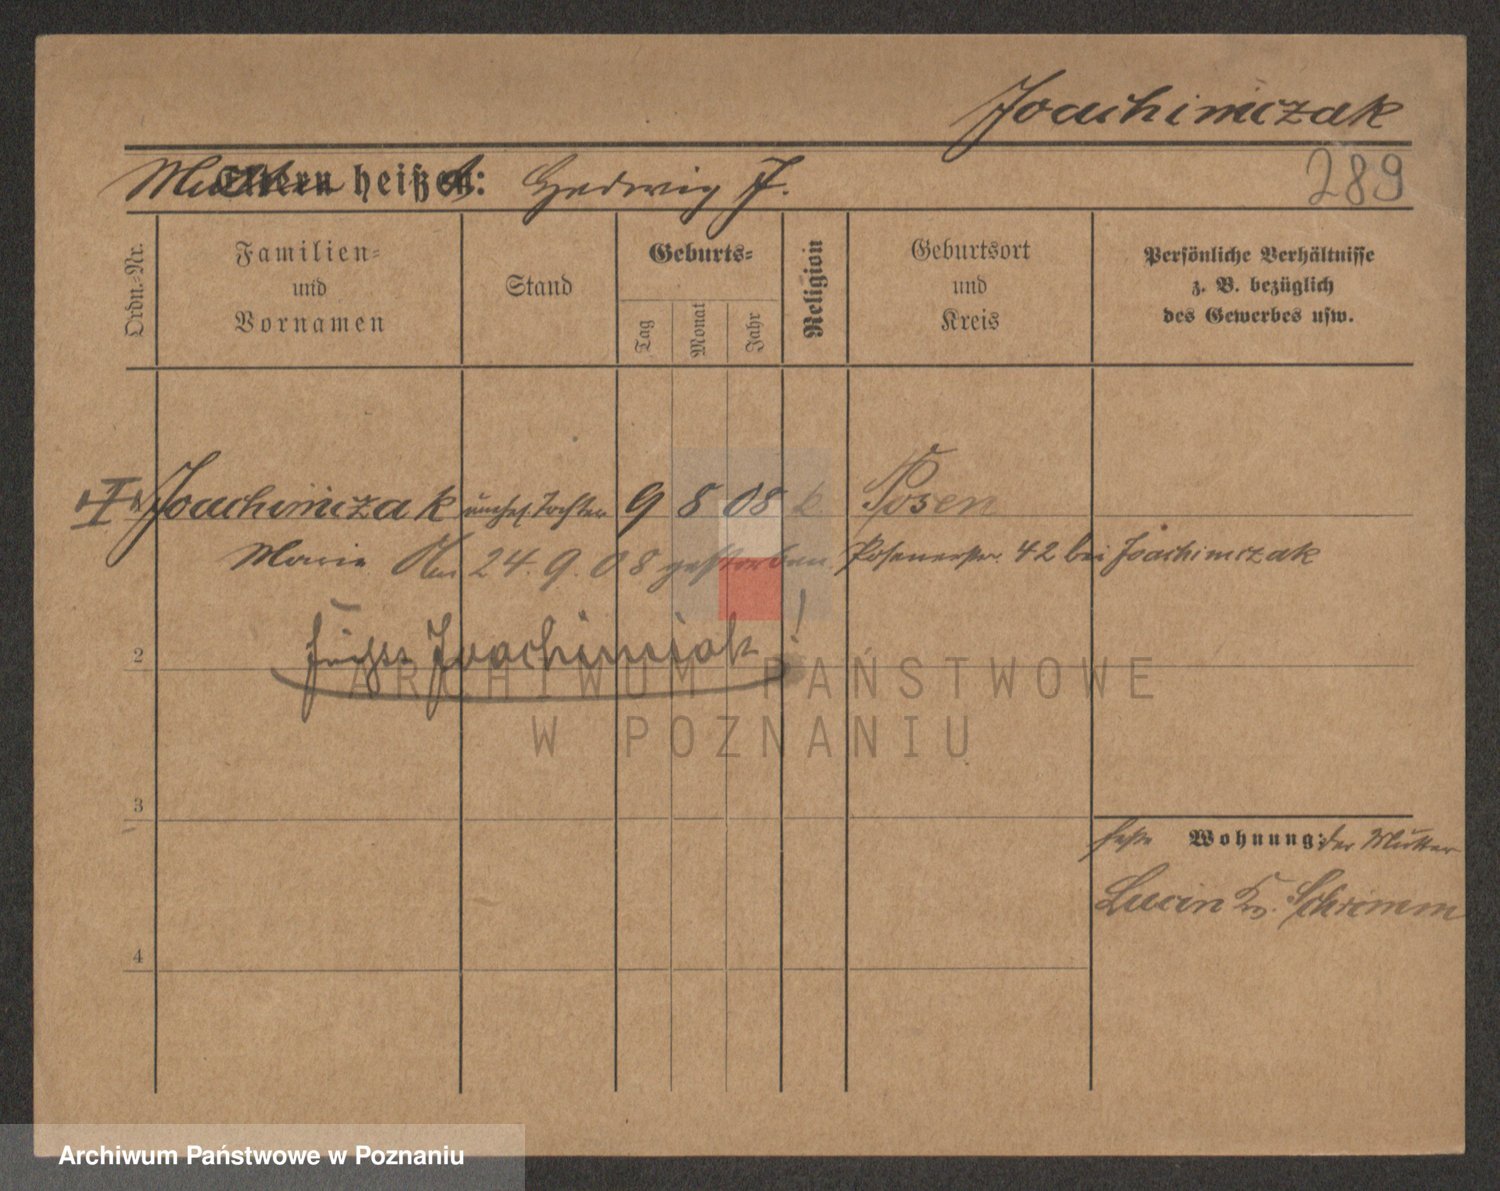 Joachimczak
289
Mutter heißt: Hedwig J.
Ordn.-Nr.
Familien-
und
Vornamen
Stand
Geburts-
Tag
Monat
Jahr
Religion
Geburtsort
und
Kreis
Persönliche Verhältnisse
z. B. bezüglich
des Gewerbes usw.
I Joachimczak unehel. Tochter 9 8 08 k Posen
Marie Am 24.9.08 gestorben. Posenerstr. 42 bei Joachimczak
Joachimciak!
2
ARCHIWUM PAŃSTWOWE
W POZNANIU
3
Wohnung: der Mutter
Lucin Kr. Schrimm
4
Archiwum Państwowe w Poznaniu